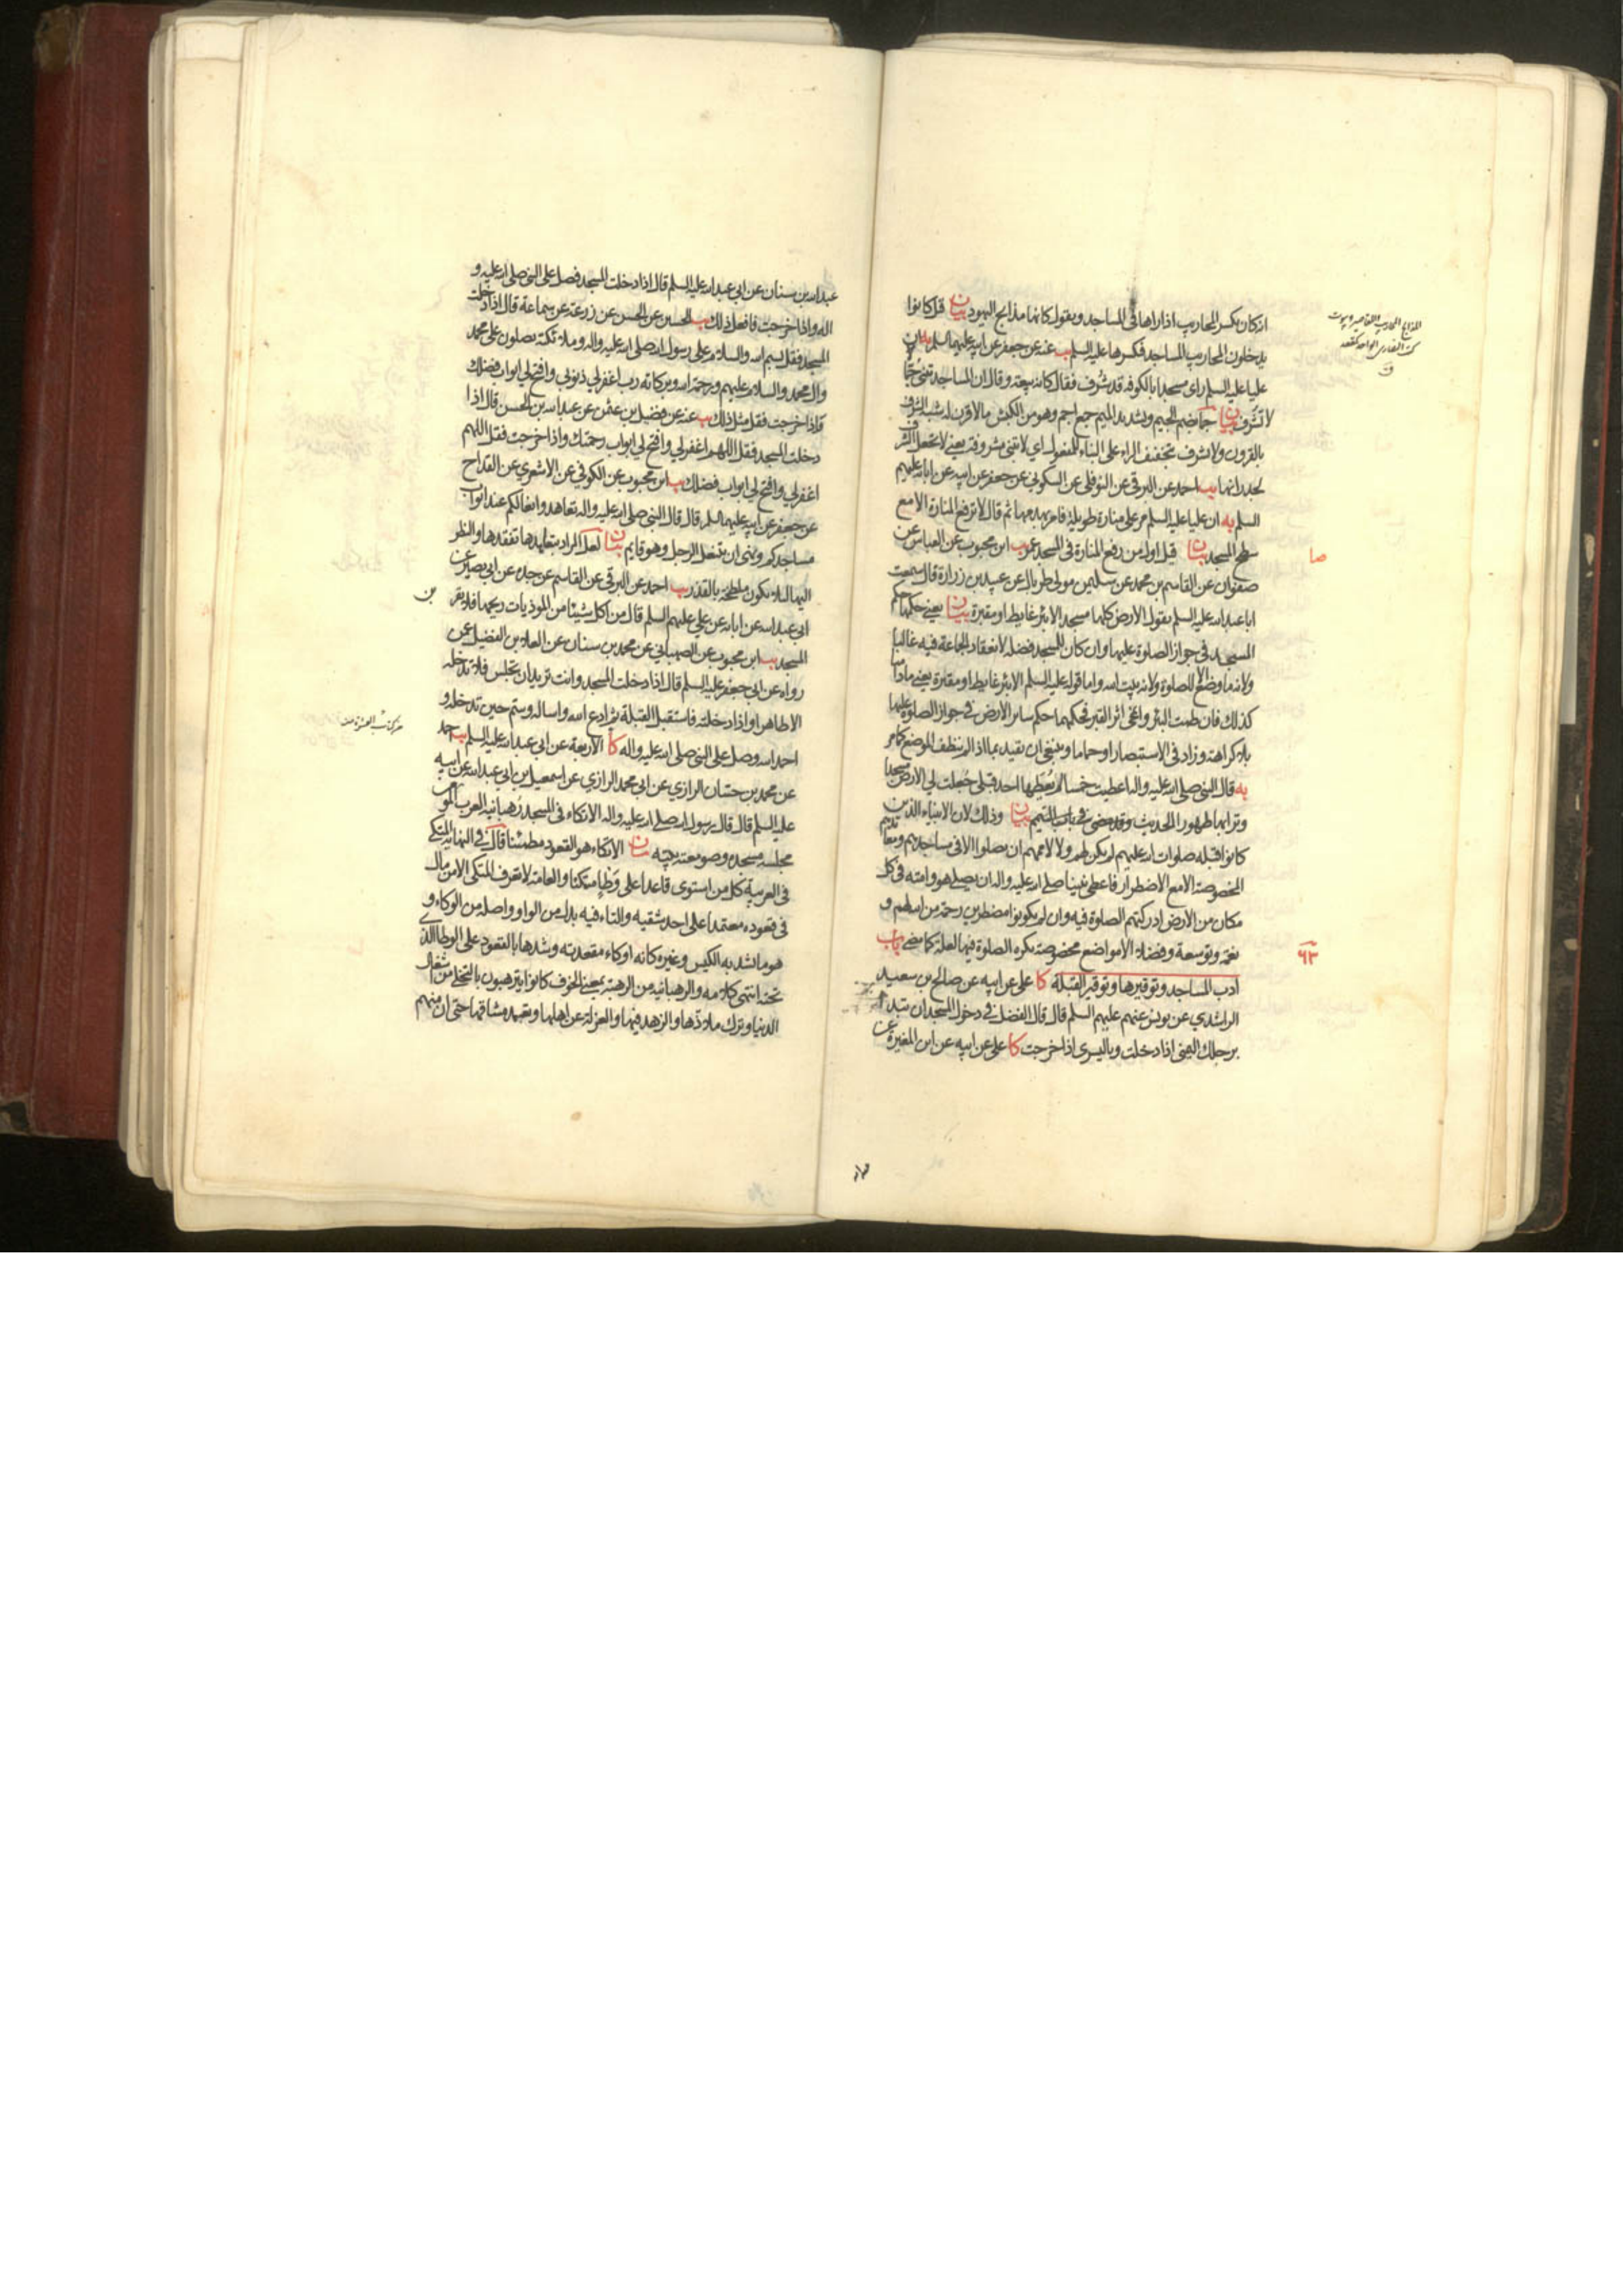 انه كان يكسر المحاريب اذا راها في المساجد ويقول كانها مذابح اليهود بيان قيل كانوا
يدخلون المحاريب المساجد فكسرها عليه السلم يب عنه عن جعفر عن ابيه عليهما السلم ان
عليا عليه السلم راى مسجدا بالكوفه قد شُرف فقال كانه بيعة وقال ان المساجد تبنى جُمّا
لا تُشرف بيان جما بضم الجيم وتشديد الميم جمع اجم وهو من الكبش ما لا قرن له شبه الشرف
بالقرون ولا تشرف بتخفيف الراء على البناء للمفعول اي لا تبنى مشروفة يعني لا تجعل الشرف
لجدرانها يب احمد عن البرقي عن النوفلي عن السكوني عن جعفر عن ابيه عن ابائه عليهم
السلم يه ان عليا عليه السلم مر على منارة طويلة فامر بهدمها ثم قال لا ترفع المنارة الا مع
سطح المسجد بيان قيل اول من رفع المنارة في المسجد عمر يب ابن محبوب عن العباس عن
صفوان عن القاسم بن محمد عن سليمن مولى طربال عن عبيد بن زرارة قال سمعت
ابا عبد الله عليه السلم يقول الارض كلها مسجد الا بئر غايط او مقبرة بيان يعني حكمها حكم
المسجد في جواز الصلوة عليها وان كان للمسجد فضله لانعقاد الجماعة فيه غالبا
ولانه ما وضع الا للصلوة ولانه بيت الله واما قوله عليه السلم الا بئر غايط او مقبرة يعني ما داما
كذلك فان طمت البئر وانمحى اثر القبر فحكمهما حكم ساير الارض في جواز الصلوة عليها
بلا كراهة وزاد في الاستبصار او حماما وينبغي ان يقيد بما اذا لم ينظف الموضع كما مر
يه قال النبي صلى الله عليه واله اعطيت خمسا لم يُعطها احد قبلي جُعلت لي الارض مسجدا
وترابها طهورا الحديث وقد مضى في باب التيمم بيان وذلك لان الانبياء الذين
كانوا قبله صلوات الله عليهم لم يكن لهم ولا لاممهم ان يصلوا الا في مساجدهم ومعابدهم
المخصوصة الا مع الاضطرار فاعطي نبينا صلى الله عليه واله ان يصلي هو وامته في كل
مكان من الارض ادركتهم الصلوة فيه وان لم يكونوا مضطرين رحمة من الله لهم و
نعمة وتوسعة وفضلا الا مواضع مخصوصة تكره الصلوة فيها لعلة كما مضى باب
ادب المساجد وتوقيرها وتوقير القبلة كا علي عن ابيه عن صالح بن سعيد
الراشدي عن يونس عنهم عليهم السلم قال قال الفضل في دخول المسجد ان تبدا
برجلك اليمنى اذا دخلت وباليسرى اذا خرجت كا علي عن ابيه عن ابن المغيرة عن
صا
٩٣
عبد الله بن سنان عن ابي عبد الله عليه السلم قال اذا دخلت المسجد فصل على النبي صلى الله عليه و
اله واذا خرجت فافعل ذلك يب الحسين عن الحسن عن زرعة عن سماعة قال اذا دخلت
المسجد فقل بسم الله والسلام على رسول الله صلى الله عليه واله وملائكته يصلون على محمد
وال محمد والسلام عليهم ورحمة الله وبركاته رب اغفر لي ذنوبي وافتح لي ابواب فضلك
فاذا خرجت فقل مثل ذلك يب عنه عن فضيل بن عثمن عن عبد الله بن الحسن قال اذا
دخلت المسجد فقل اللهم اغفر لي وافتح لي ابواب رحمتك واذا خرجت فقل اللهم
اغفر لي وافتح لي ابواب فضلك يب ابن محبوب عن الكوفي عن الاشعري عن القداح
عن جعفر عن ابيه عليهما السلم قال قال النبي صلى الله عليه واله تعاهدوا نعالكم عند ابواب
مساجدكم ونهى ان يتنعل الرجل وهو قايم بيان لعل المراد بتعاهدها تفقدها والنظر
اليها لئلا يكون ملطخة بالقذر يب احمد عن البرقي عن القاسم عن جده عن ابي بصير عن
ابي عبد الله عن ابائه عن علي عليهم السلم قال من اكل شيئا من الموذيات ريحها فلا يقربن
المسجد يب ابن محبوب عن الصهباني عن محمد بن سنان عن العلاء بن الفضيل عن
رواه عن ابي جعفر عليه السلم قال اذا دخلت المسجد وانت تريد ان تجلس فلا تدخله
الا طاهرا واذا دخلته فاستقبل القبلة ثم ادع الله واساله وسم حين تدخله و
احمد الله وصل على النبي صلى الله عليه واله كا الاربعة عن ابي عبد الله عليه السلم يب احمد
عن محمد بن حسان الرازي عن ابي محمد الرازي عن اسمعيل بن ابي عبد الله عن ابيه
عليه السلم قال قال رسول الله صلى الله عليه واله الاتكاء في المسجد رهبانية العرب المومن
مجلسه مسجده وصومعته بيته بيان الاتكاء هو القعود مطمئنا قال في النهاية المتكي
في العربية كل من استوى قاعدا على وطاء متمكنا والعامة لا تعرف المتكي الا من مال
في قعوده معتمدا على احد شقيه والتاء فيه بدل من الواو واصله من الوكاء و
هو ما يشد به الكيس وغيره كانه اوكاء مقعدته وشدها بالقعود على الوطاء الذي
تحته انتهى كلامه والرهبانية من الرهبة بمعنى الخوف كانوا يترهبون بالتخلي من اشغال
الدنيا وترك ملاذها والزهد فيها والعزلة عن اهلها وتعهد مشاقها حتى ان منهم